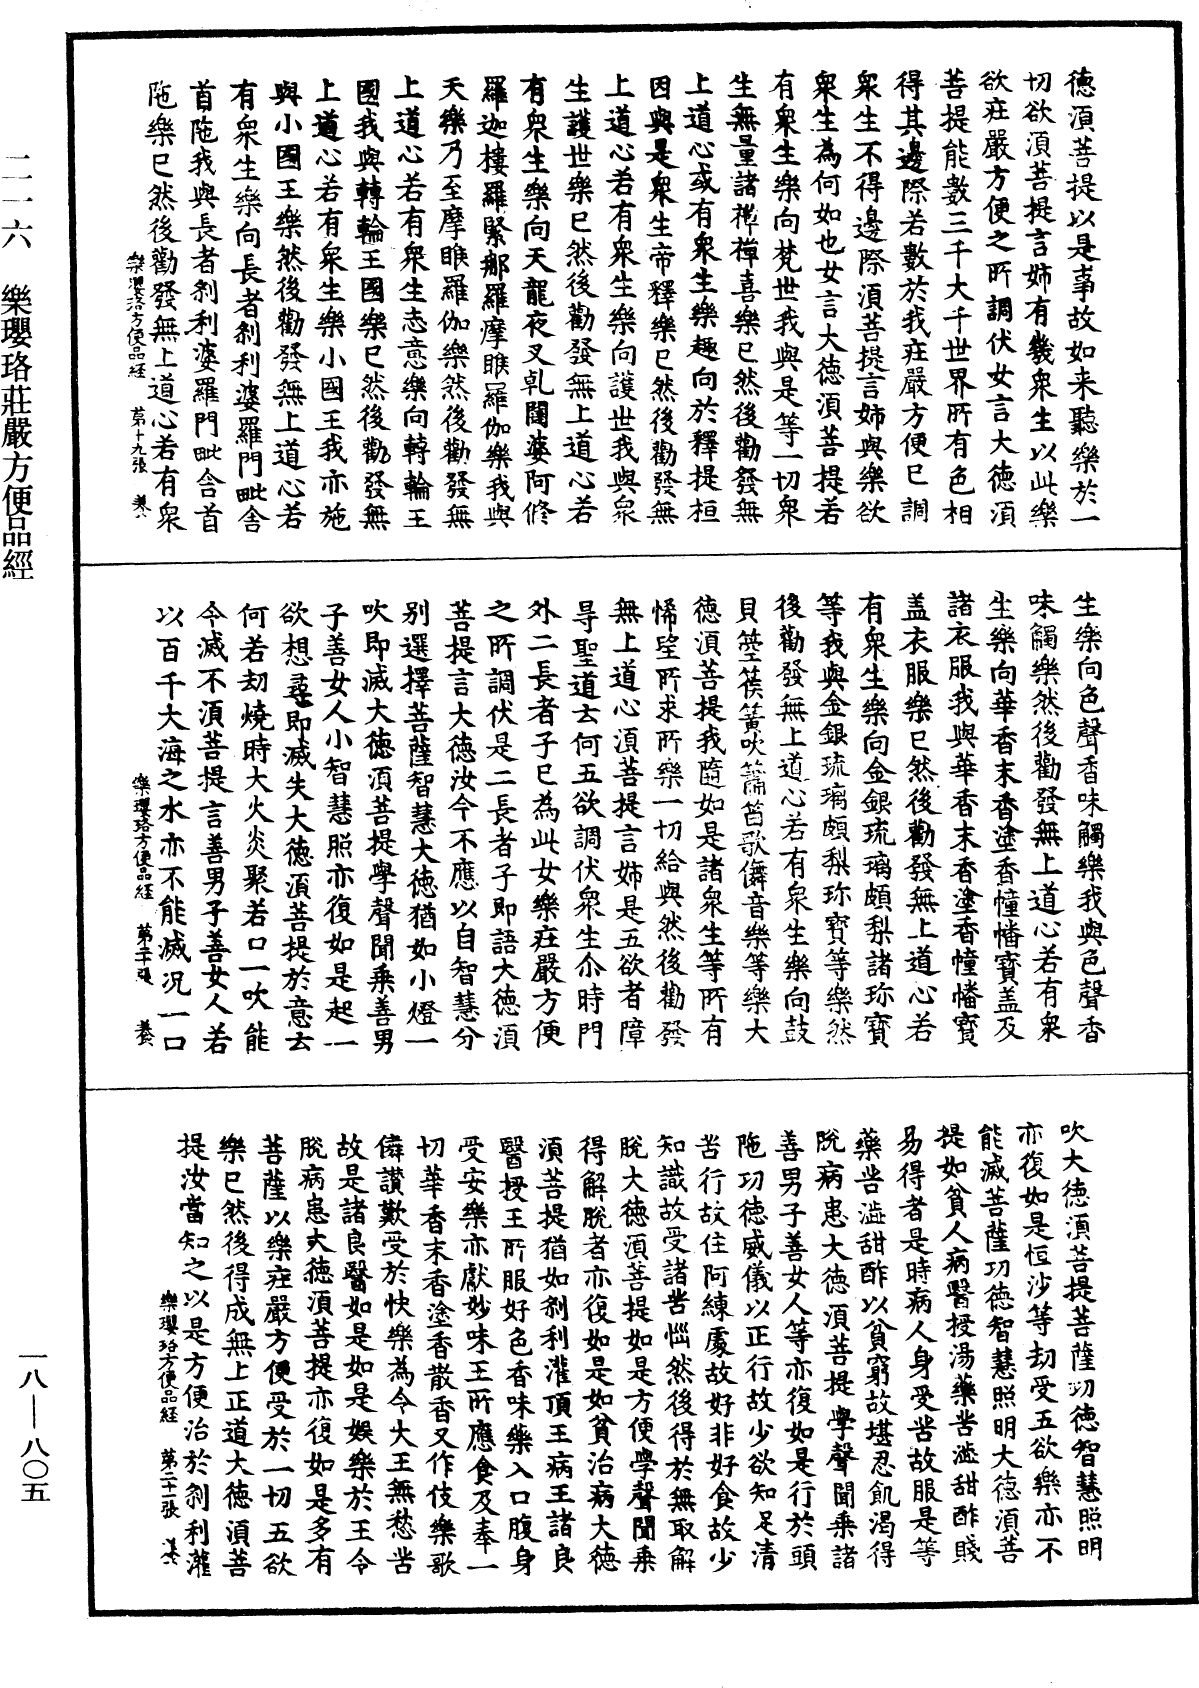 二一六　樂瓔珞莊嚴方便品經
一八—八〇五
德湏菩提以是事故如来聽樂於一
切欲湏菩提言姉有幾衆生以此樂
欲莊嚴方便之所調伏女言大德湏
菩提能數三千大千世界所有色相
得其邊際若數於我莊嚴方便已調
衆生不得邊際湏菩提言姉與樂欲
衆生為何如也女言大德湏菩提若
有衆生樂向梵世我與是等一切衆
生無量諸禪禪喜樂已然後勸發無
上道心或有衆生樂趣向於釋提桓
因與是衆生帝釋樂已然後勸發無
上道心若有衆生樂向護世我與衆
生護世樂已然後勸發無上道心若
有衆生樂向天龍夜叉乹闥婆阿修
羅迦樓羅緊那羅摩睺羅伽樂我與
天樂乃至摩睺羅伽樂然後勸發無
上道心若有衆生志意樂向轉輪王
國我與轉輪王國樂已然後勸發無
上道心若有衆生樂小國王我亦施
與小國王樂然後勸發無上道心若
有衆生樂向長者刹利婆羅門毗舍
首陁我與長者刹利婆羅門毗舍首
陁樂已然後勸發無上道心若有衆
樂瓔珞方便品経　第十九張
生樂向色聲香味觸樂我與色聲香
味觸樂然後勸發無上道心若有衆
生樂向華香末香塗香幢幡寶盖及
諸衣服我與華香末香塗香幢幡寶
盖衣服樂已然後勸發無上道心若
有衆生樂向金銀琉璃頗梨諸珎寶
等我與金銀琉璃頗梨珎寶等樂然
後勸發無上道心若有衆生樂向鼓
貝箜篌簧吹簫笛歌儛音樂等樂大
德湏菩提我隨如是諸衆生等所有
悕望所求所樂一切給與然後勸發
無上道心湏菩提言姉是五欲者障
㝵聖道去何五欲調伏衆生尒時門
外二長者子已為此女樂莊嚴方便
之所調伏是二長者子即語大德湏
菩提言大德汝今不應以自智慧分
別選擇菩薩智慧大德猶如小燈一
吹即滅大德湏菩提學聲聞乗善男
子善女人小智慧照亦復如是起一
欲想尋即滅失大德湏菩提於意云
何若劫燒時大火炎聚若口一吹能
令滅不湏菩提言善男子善女人若
以百千大海之水亦不能滅况一口
樂瓔珞方便品経　第二十張
吹大德湏菩提菩薩功德智慧照明
亦復如是恒沙等劫受五欲樂亦不
能滅菩薩功德智慧照明大德湏菩
提如貧人病醫授湯藥苦澁甜酢賤
易得者是時病人身受苦故服是等
藥苦澁甜酢以貧窮故堪忍飢渴得
脫病患大德湏菩提學聲聞乗諸
善男子善女人等亦復如是行於頭
陁功德威儀以正行故少欲知足清
苦行故住阿練處故好非好食故少
知識故受諸苦惱然後得於無取解
脫大德湏菩提如是方便學聲聞乗
得解脫者亦復如是如貧治病大德
湏菩提猶如刹利灌頂王病王諸良
醫授王所服好色香味藥入口腹身
受安樂亦獻妙味王所應食及奉一
切華香末香塗香散香又作伎樂歌
儛讃歎受於快樂為令大王無愁苦
故是諸良醫如是如是娛樂於王令
脫病患大德湏菩提亦復如是多有
菩薩以樂莊嚴方便受於一切五欲
樂已然後得成無上正道大德湏菩
提汝當知之以是方便治於刹利灌
樂瓔珞方便品経　第二十一張